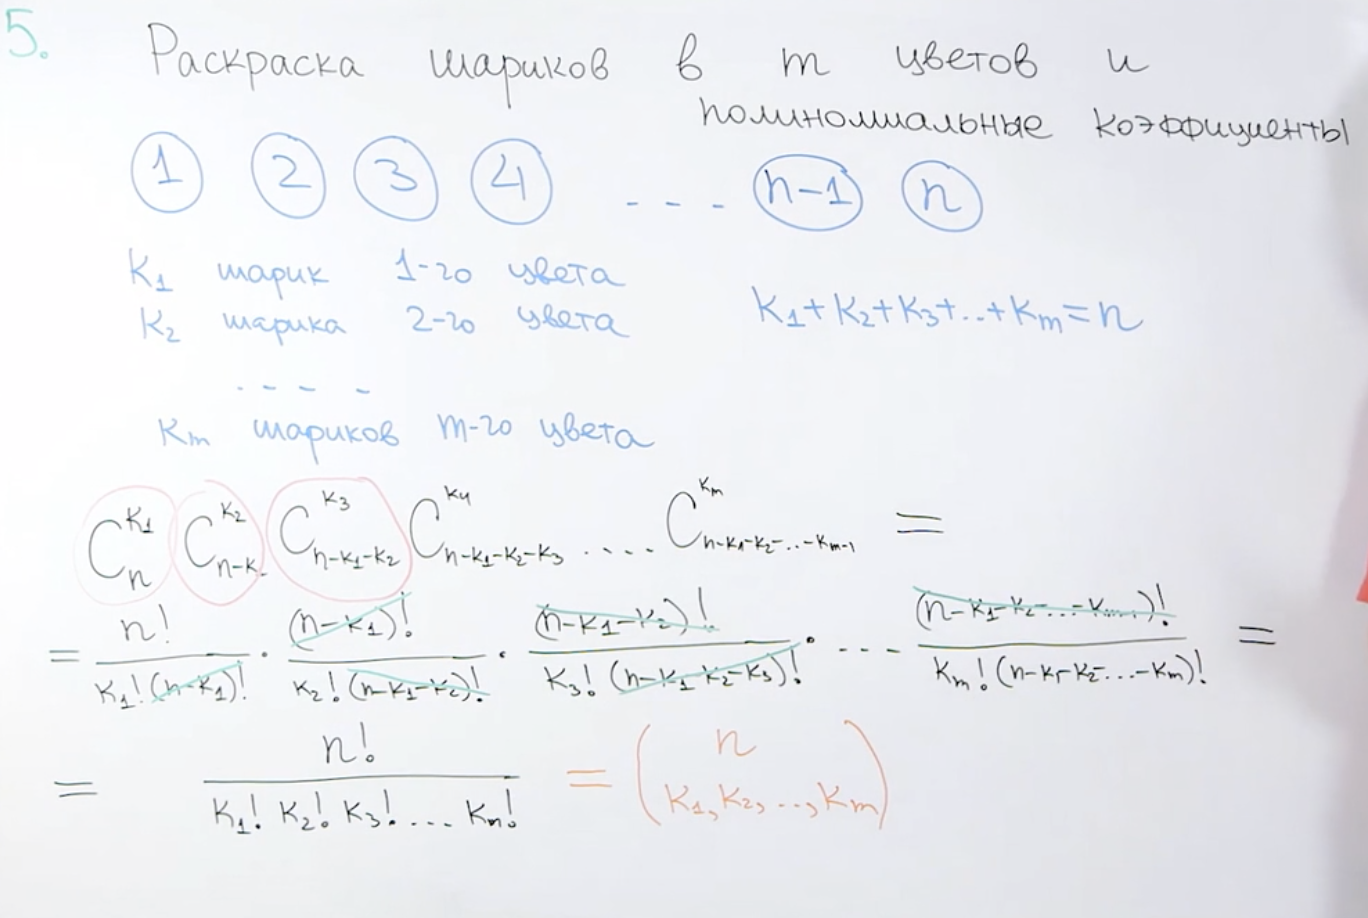 5.
Раскраска шариков в m цветов и
полиномиальные коэффициенты
1 2 3 4 - - - n-1 n
K₁ шарик 1-го цвета
K₂ шарика 2-го цвета
K₁+K₂+K₃+..+Kₘ=n
- - - -
Kₘ шариков m-го цвета
C_n^{K₁} C_{n-K}^{K₂} C_{n-K₁-K₂}^{K₃} C_{n-K₁-K₂-K₃}^{K₄} .... C_{n-K₁-K₂-..-K_{m-1}}^{Kₘ} =
= n!/(K₁!(n-K₁)!) · (n-K₁)!/(K₂!(n-K₁-K₂)!) · (n-K₁-K₂)!/(K₃!(n-K₁-K₂-K₃)!) · ... (n-K₁-K₂-...-K_{m-1})!/(Kₘ!(n-K₁-K₂-...-Kₘ)!) =
= n!/(K₁! K₂! K₃! ... Kₘ!) = (n / K₁,K₂,..,Kₘ)